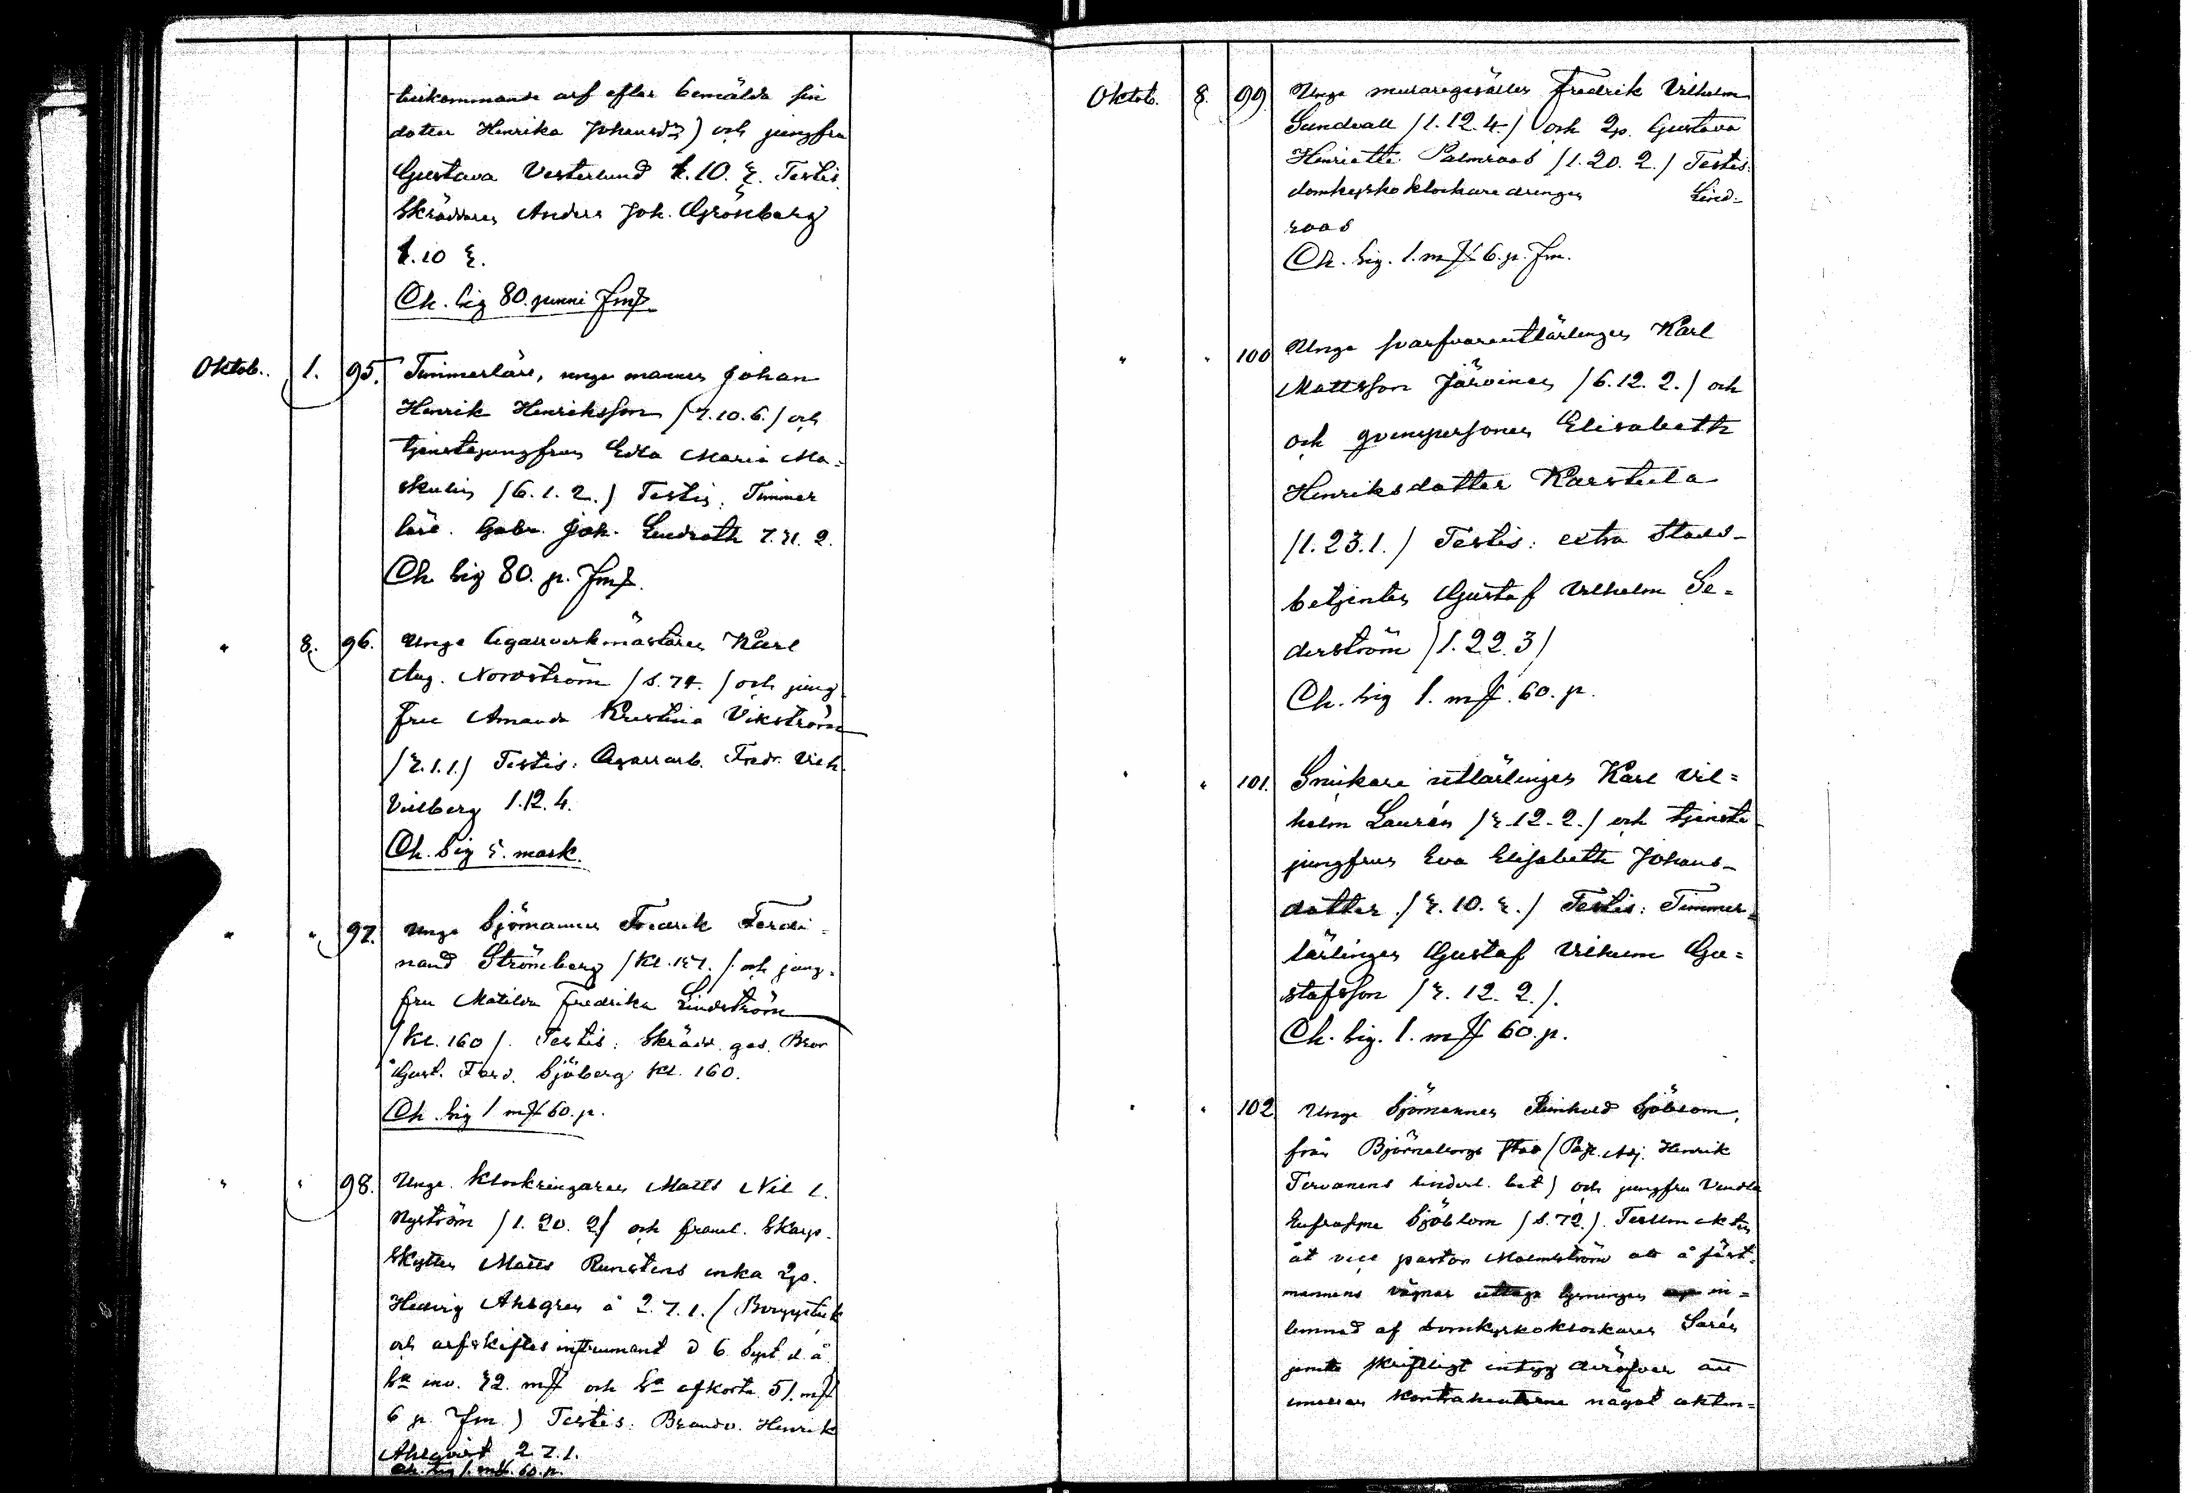 tillkommande arf efter bemälda sin
dotter Henrika Johansdr) och jungfru
Gustava Vesterlund 1.10. 5. Testis.
Skräddaren Anders Joh. Grönberg
1.10 5.
Ch. sig 80. penni fmk.
Oktob. 1. 95. Timmerlärl, unge mannen Johan
Henrik Henriksson /7.10.6./ och
tjenstejungfrun Edla Maria Ma=
skulin /6.1.2./ Testis. Timmer
lärl. Gabr. Joh. Lindroth
Ch sig 80. p. fmk.
" 8. 96. Unge Cigarrverkmästaren Karl
Aug. Nordström /S. 74./ och jung
fru Amanda Kristina Vikström
/5.1.1./ Testis: Cigarrarb. Fredr. Vilh.
Villberg 1.12.4.
Ch. sig 5. mark.
" " 97. Unge Sjömannen Fredrik Ferdi=
nand Strömberg /Kl. 157./ och jung=
fru Matilda Fredrika Lindström
/Kl. 160/. Testis: Skrädd. ges. Bror
Gust. Ferd. Sjöberg Kl. 160.
Ch. sig 1 mk 60. p.
" " 98. Unge Klockringaren Matts Nil
Nyström /1. 20. 2/ och framl. Skarp-
Skytten Matts Runstens enka 2p.
Hedvig Ahlgren å 2.7.1. /Bouppteck
och arfskiftesinstrument d 6 Sept. d. å
inv. 72. mk och afkortn. 51. mk
6 p. fm.) Testis: Brandv. Henrik
Ahlqvist 2.7.1.
Ch. sig 1. mk. 60. p.
Oktob. 8. 99. Unge muraregesällen Fredrik Vilhelm
Sundvall /1.12.4./ och 2p. Gustava
Henriette Palmroos /1.20.2./ Testis:
domkyrkoklockaredrengen Lind=
roos
Ch. sig. 1. mk 6. p. fm.
" " 100 Unge svarfvareutlärlingen Karl
Mattsson Järvinen /6.12.2./ och
och qvinspersonen Elisabeth
Henriksdotter Karstula
/1.23.1./ Testis: extra Stads-
betjenten Gustaf Vilhelm Se=
derström /1.22.3/
Ch. sig 1. mk. 60. p.
" " 101. Snickare utlärlingen Karl Vil=
helm Laurén /5.12.2./ och tjenste-
jungfrun Eva Elisabeth Johans-
dotter /5.10.5./ Testis: Timmer=
lärlingen Gustaf Vilhelm Gu=
stafsson /5.12.2./.
Ch. sig. 1. mk 60. p.
" " 102. Unge Sjömannen Reinhold Sjöblom,
från Björneborgs stad (Past. Adj. Henrik
Tervanens hinderl. bet) och jungfru Vendla
Eufrosyne Sjöblom /S. 72./. Fullmakten
åt vice pastor Malmström att å fäst=
mannens vägnar uttaga lysningen in=
lemnad af domkyrkoklockaren Sarén
jemte skriftligt intyg deröfver att
emellan kontrahenterne något äkten=